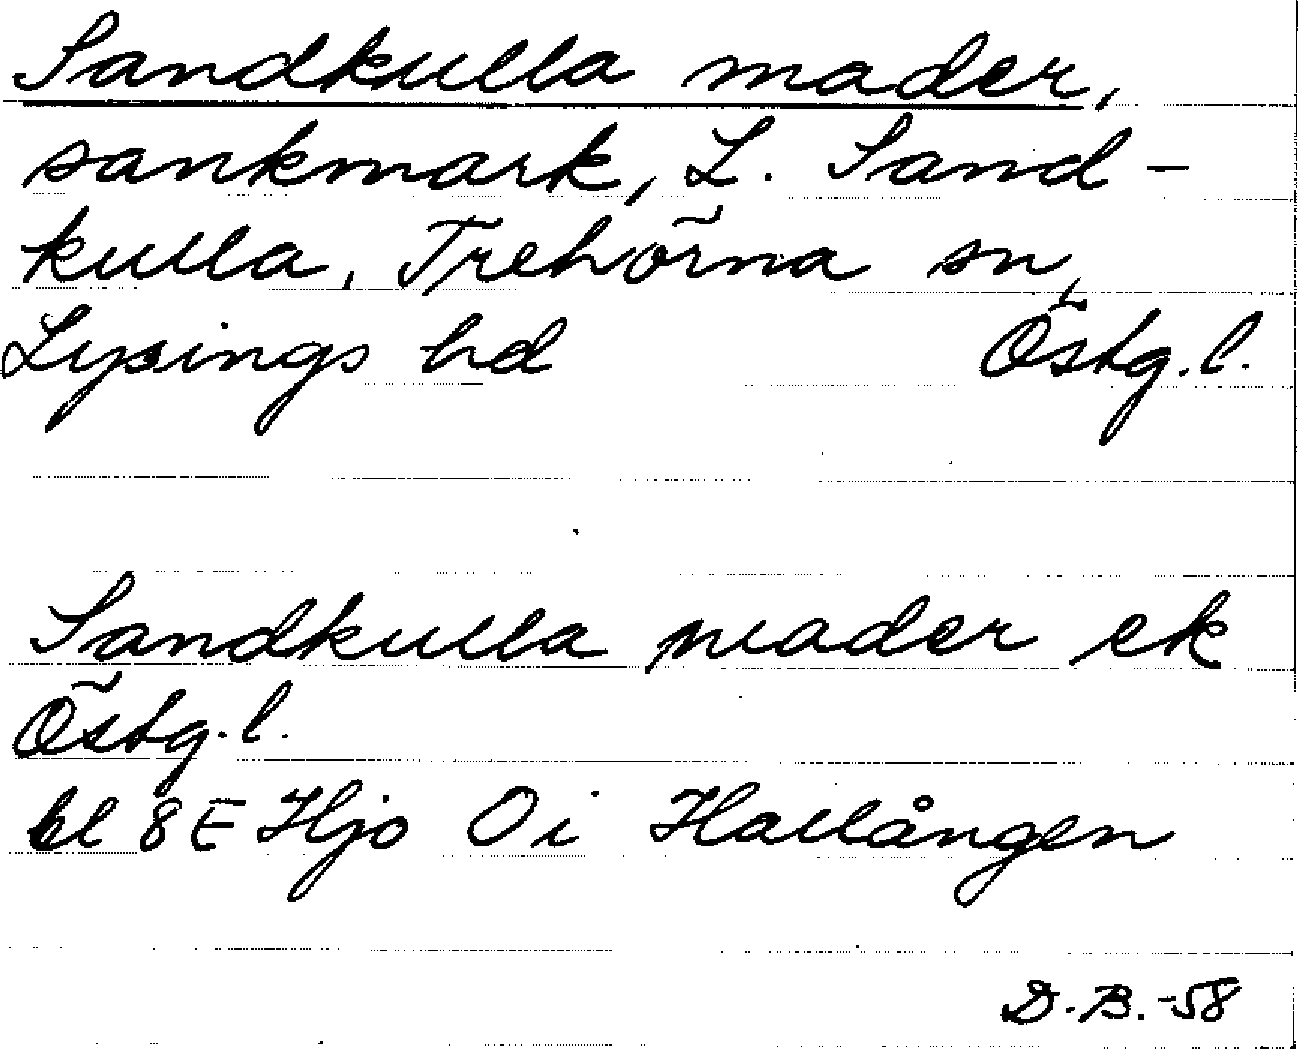 Sandkulla mader,
sankmark, L. Sand-
kulla, Trehörna sn,
Lysings hd Östg. l.
Sandkulla mader ek
Östg. l.
bl 8E Hjo Oi Hallången
D. B. -58